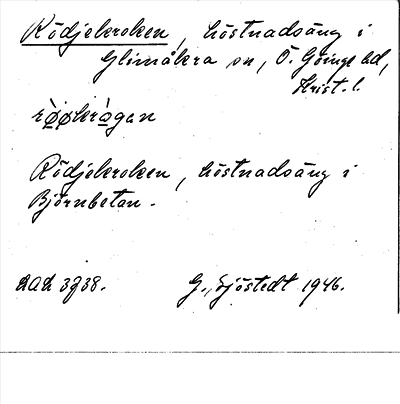 Rödjekroken, höstnadsäng i
Glimåkra sn, Ö. Göinge hd,
Krist. l.
rø̀økrågan
Rödjekroken, höstnadsäng i
Björnbetan.
DAL 3938.
G. Sjöstedt 1946.